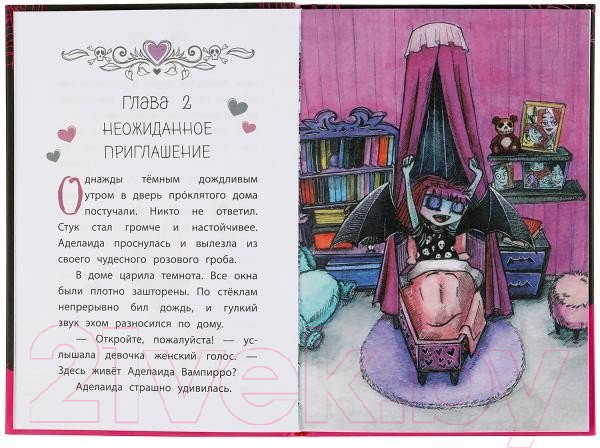 ГЛАВА 2
НЕОЖИДАННОЕ
ПРИГЛАШЕНИЕ
Однажды тёмным дождливым
утром в дверь про́клятого дома
постучали. Никто не ответил.
Стук стал громче и настойчивее.
Аделаида проснулась и вылезла из
своего чудесного розового гроба.
В доме царила темнота. Все окна
были плотно зашторены. По стёклам
непрерывно бил дождь, и гулкий
звук эхом разносился по дому.
— Откройте, пожалуйста! — ус-
лышала девочка женский голос. —
Здесь живёт Аделаида Вампирро?
Аделаида страшно удивилась.
21vek.by